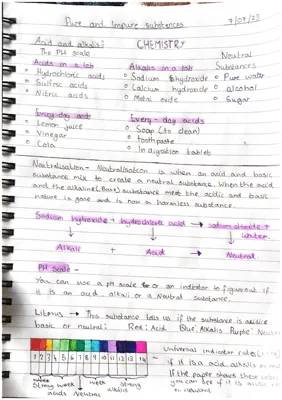 Pure and Impure substances 7/07/23
CHEMISTRY
Acid and alkali:
The PH scale
Acids in a lab
Hydrochloric acids
Sulfric acids
Nitric acids
Alkalis in a lab
Sodium hydroxide
Calcium hydroxide
Metal oxide
Neutral
Substances
Pure water
alcohol
Sugar
Everyday acid
Lemon juice
Vinegar
Cola
Every-day acids
Soap (to clean)
toothpaste
Indigestion tablets
Neutralisation - Neutralisation is when an acid and basic
substance mix to create a neutral substance. When the acid
and the alkaline (Base) substance meet the acidic and basic
nature is gone and is now a harmless substance.
Sodium hydroxide + hydrochloric acid → sodium chloride +
water.
Alkali + Acid → Neutral
PH scale -
You can use a pH scale or an indicator to figure out if
it is an acid alkali or a Neutral substance.
Litmus → This substance tells us if the substance is acidic
basic or neutral: Red: Acid Blue: Alkalis Purple: Neutral
Universal indicator
1 2 3 4 5 6 7 8 9 10 11 12 13 14
if it is a acid alkalis or
If the paper shows these
you can see if it is acidic
or neutral
Strong weak weak strong
acids Neutral alkalis